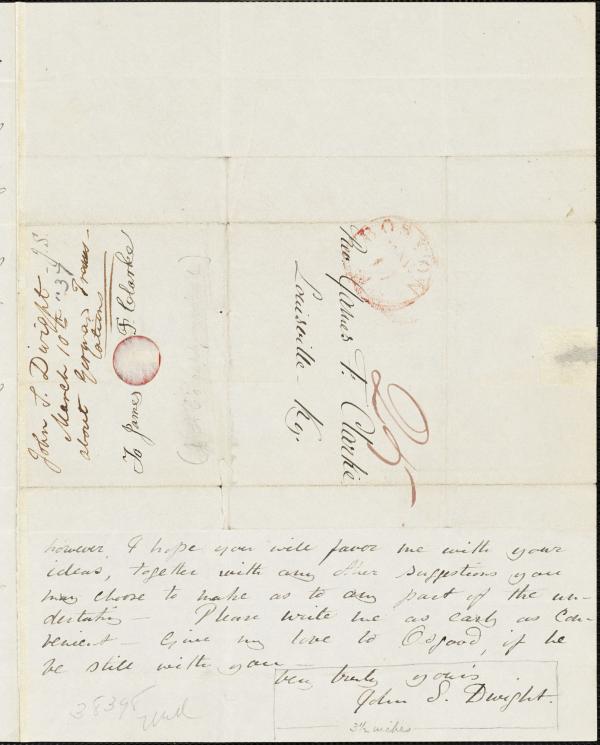 John S. Dwight - J S
March 10th "37
about German Trans-
lations
To James F. Clarke
BOSTON
25
Rev. James F. Clarke
Louisville - Ky.
however, I hope you will favor me with your
ideas, together with any other suggestions you
may choose to make as to any part of the un-
dertaking — Please write me as early as con-
venient — Give my love to Osgood, if he
be still with you —
Very truly yours
John S. Dwight.
38395
3½ inches